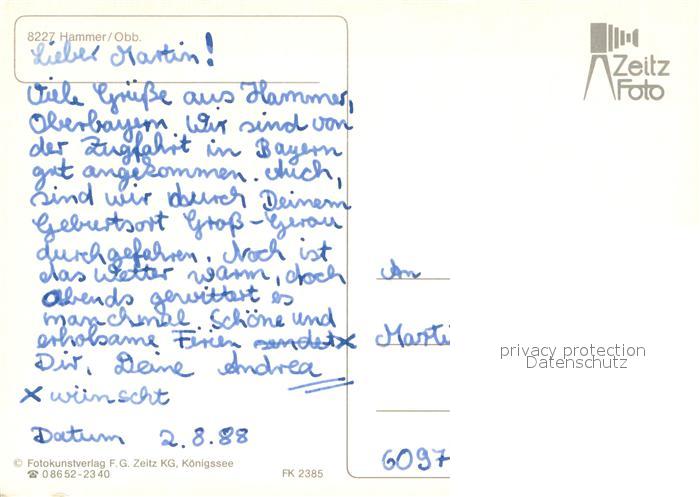 8227 Hammer/Obb.
Lieber Martin!
Viele Grüße aus Hammer,
Oberbayern. Wir sind von
der Zugfahrt in Bayern
gut angekommen. Auch,
sind wir durch Deinem
Geburtsort Groß-Gerau
durchgefahren. Noch ist
das Wetter warm, doch
abends gewittert es
manchmal. Schöne und
erholsame Ferien sendet x
Dir, Deine Andrea
x wünscht
Datum 2.8.88
© Fotokunstverlag F. G. Zeitz KG, Königssee
☎ 08652-2340
FK 2385
Zeitz
Foto
An
Marti
6097
privacy protection
Datenschutz